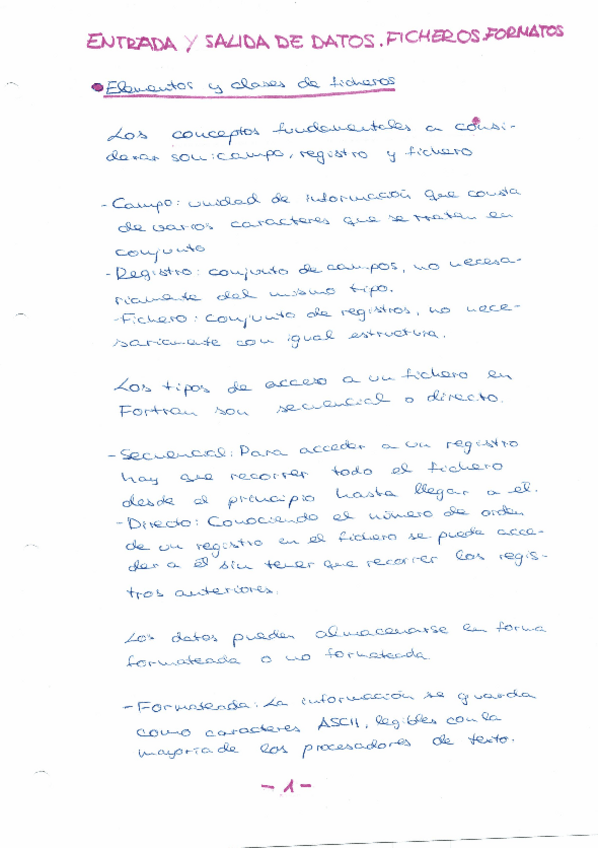 ENTRADA Y SALIDA DE DATOS. FICHEROS. FORMATOS
Elementos y clases de ficheros
Los conceptos fundamentales a consi-
derar son: campo, registro y fichero
- Campo: unidad de información que consta
de varios caracteres que se tratan en
conjunto
- Registro: conjunto de campos, no necesa-
riamente del mismo tipo.
- Fichero: conjunto de registros, no nece-
sariamente con igual estructura.
Los tipos de acceso a un fichero en
Fortran son secuencial o directo.
- Secuencial: Para acceder a un registro
hay que recorrer todo el fichero
desde el principio hasta llegar a él.
- Directo: Conociendo el número de orden
de un registro en el fichero se puede acce-
der a él sin tener que recorrer los regis-
tros anteriores.
Los datos pueden almacenarse en forma
formateada o no formateada
- Formateada: La información se guarda
como caracteres ASCII, legibles con la
mayoría de los procesadores de texto.
- 1 -